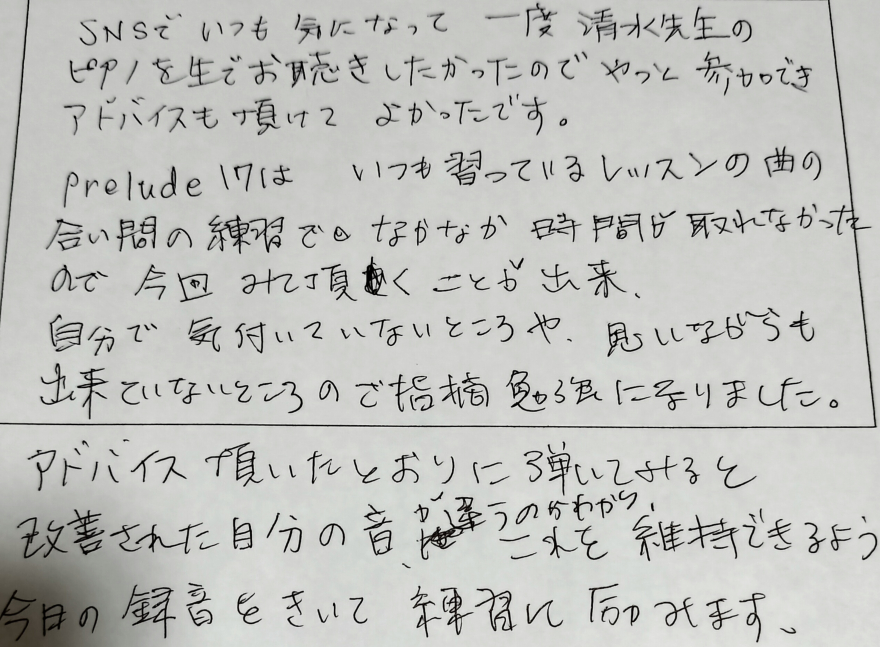 SNSで いつも 気になって 一度 清水先生の
ピアノを生でお聴きしたかったので やっと 参加でき
アドバイスも 頂けて よかったです。
prelude 17は いつも習っているレッスンの曲の
合い間の練習で なかなか 時間が 取れなかった
ので 今回 みて頂くことが 出来、
自分で 気付いていないところや、思いながらも
出来ていないところのご指摘 勉強になりました。
アドバイス 頂いたとおりに 弾いてみると
改善された自分の音が違うのがわかり、これを 維持できるよう
今日の 録音をきいて 練習に 励みます、